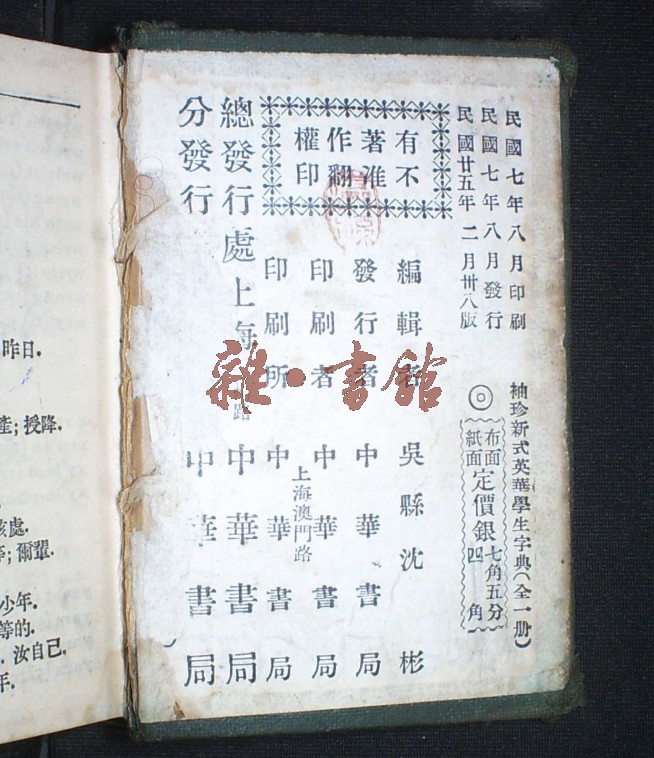 民國七年八月印刷
民國七年八月發行
民國廿五年二月卅八版
袖珍新式英華學生字典(全一册)
◎
布面 定價銀 七角五分
紙面 四角
有著作權
不准翻印
編輯者 吳縣沈彬
發行者 中華書局
印刷者 中華書局
上海澳門路
印刷所 中華書局
總發行處 上海 路 中華書局
分發行 中華書局
雜·書館
昨日.
產; 授降.
處.
; 爾輩.
少年.
等的.
. 汝自己.
年.